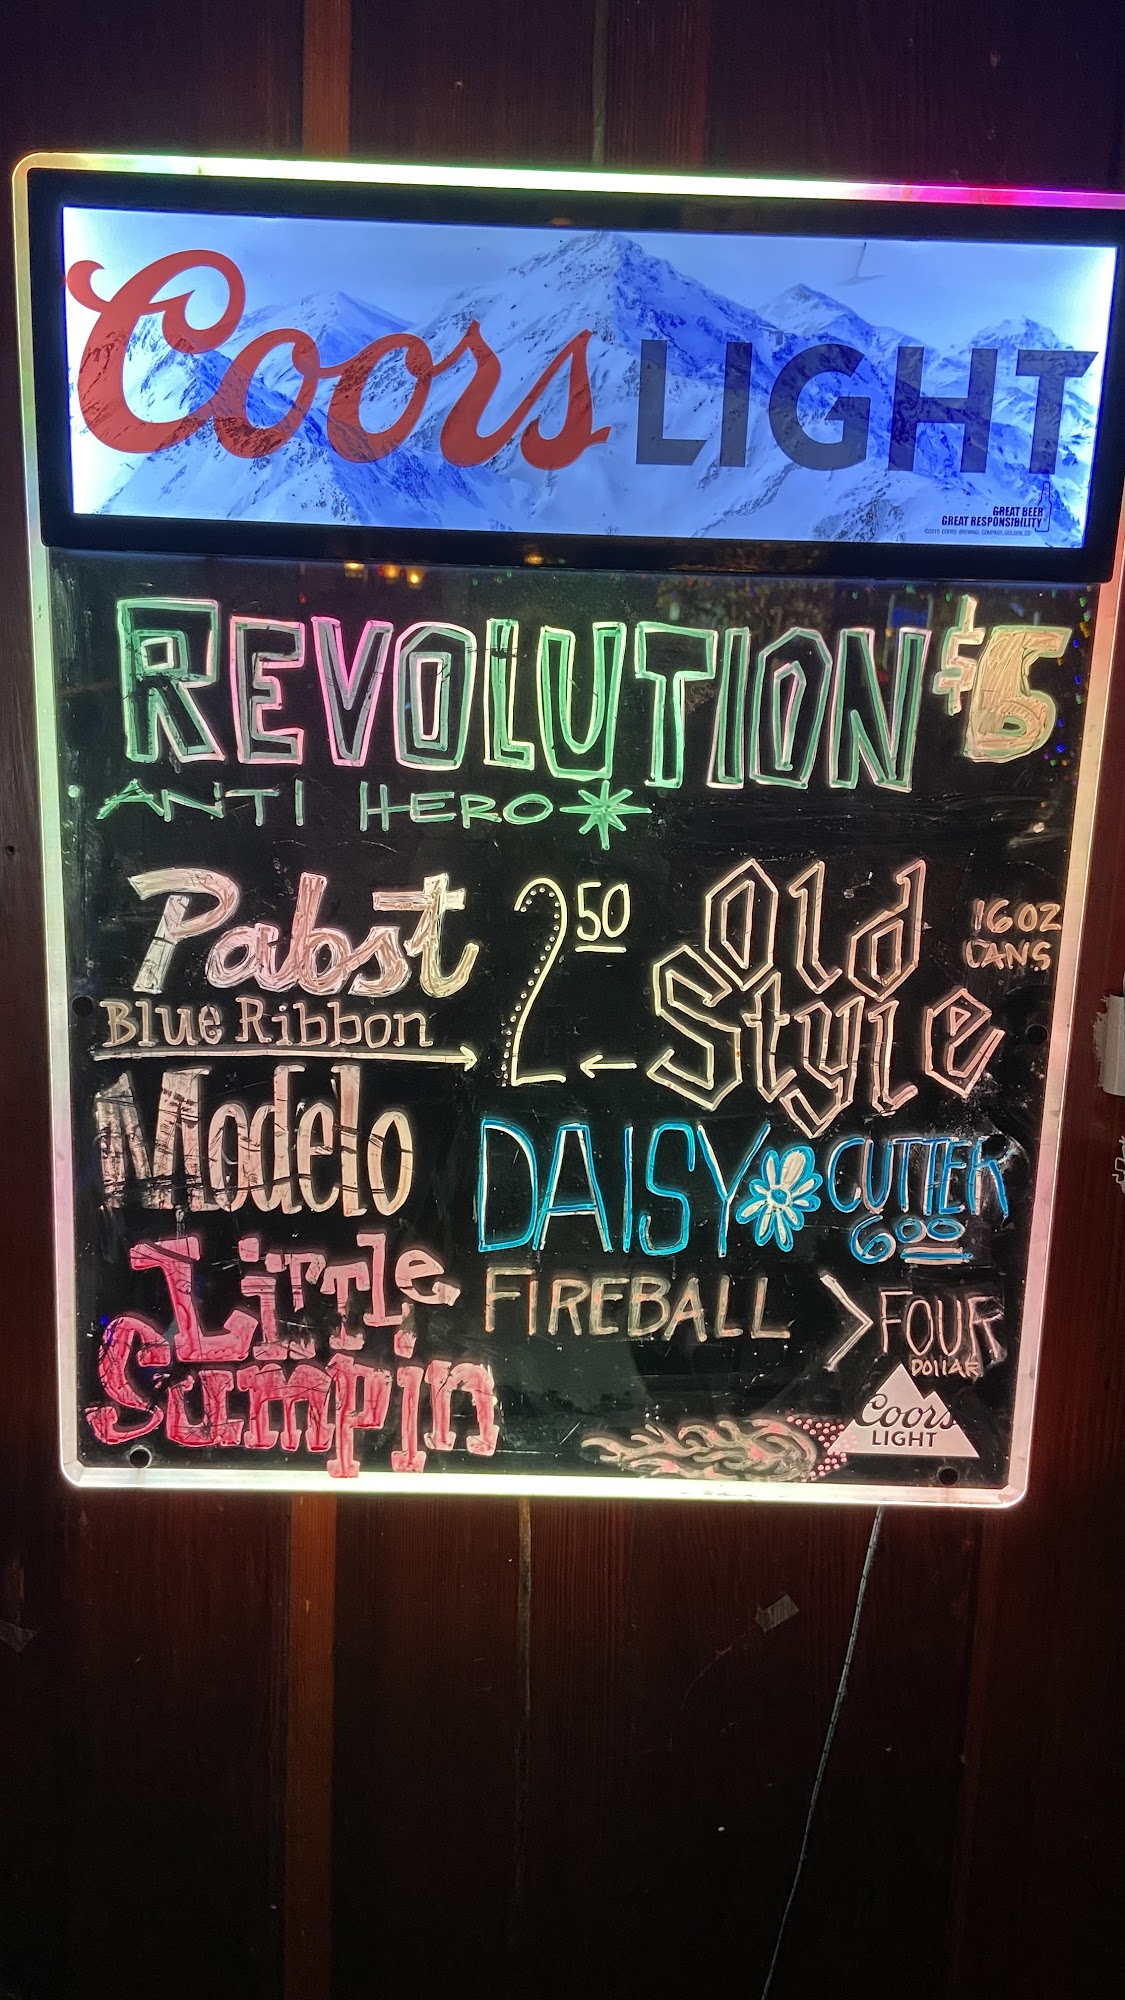 Coors LIGHT
GREAT BEER
GREAT RESPONSIBILITY
©2015 COORS BREWING COMPANY, GOLDEN, CO
REVOLUTION $5
ANTI HERO
Pabst
Blue Ribbon
2 50
Old
Style
16 OZ
CANS
Modelo
DAISY CUTTER
6 00
Little
Sumpin
FIREBALL > FOUR
DOllAR
Coors
LIGHT